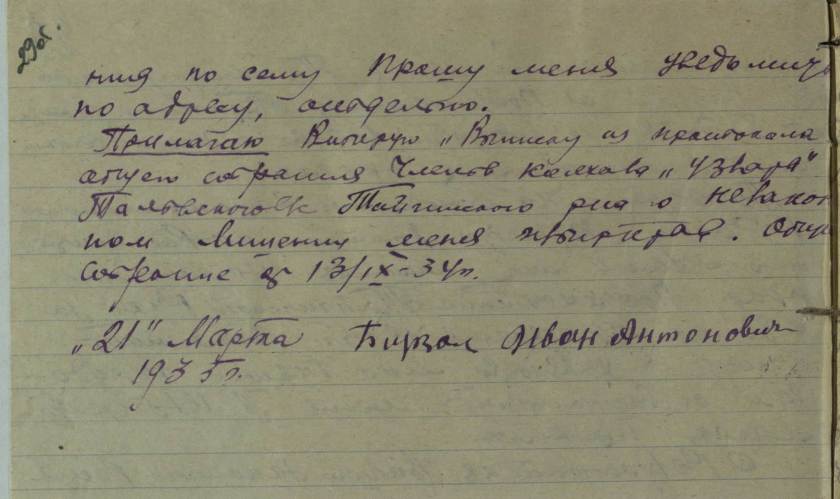 29об.
ния по сему Прошу меня уведомить
по адресу, отдельно.
Прилагаю Выписку из протокола
общего собрания Членов колхоза „Узвара"
с/с Тайгинского р-на о незакон
ном Лишении меня избирправ. Общее
собрание от 13/IX-34 г.
„21" Марта Бирзал Иван Антонович
1935 г.